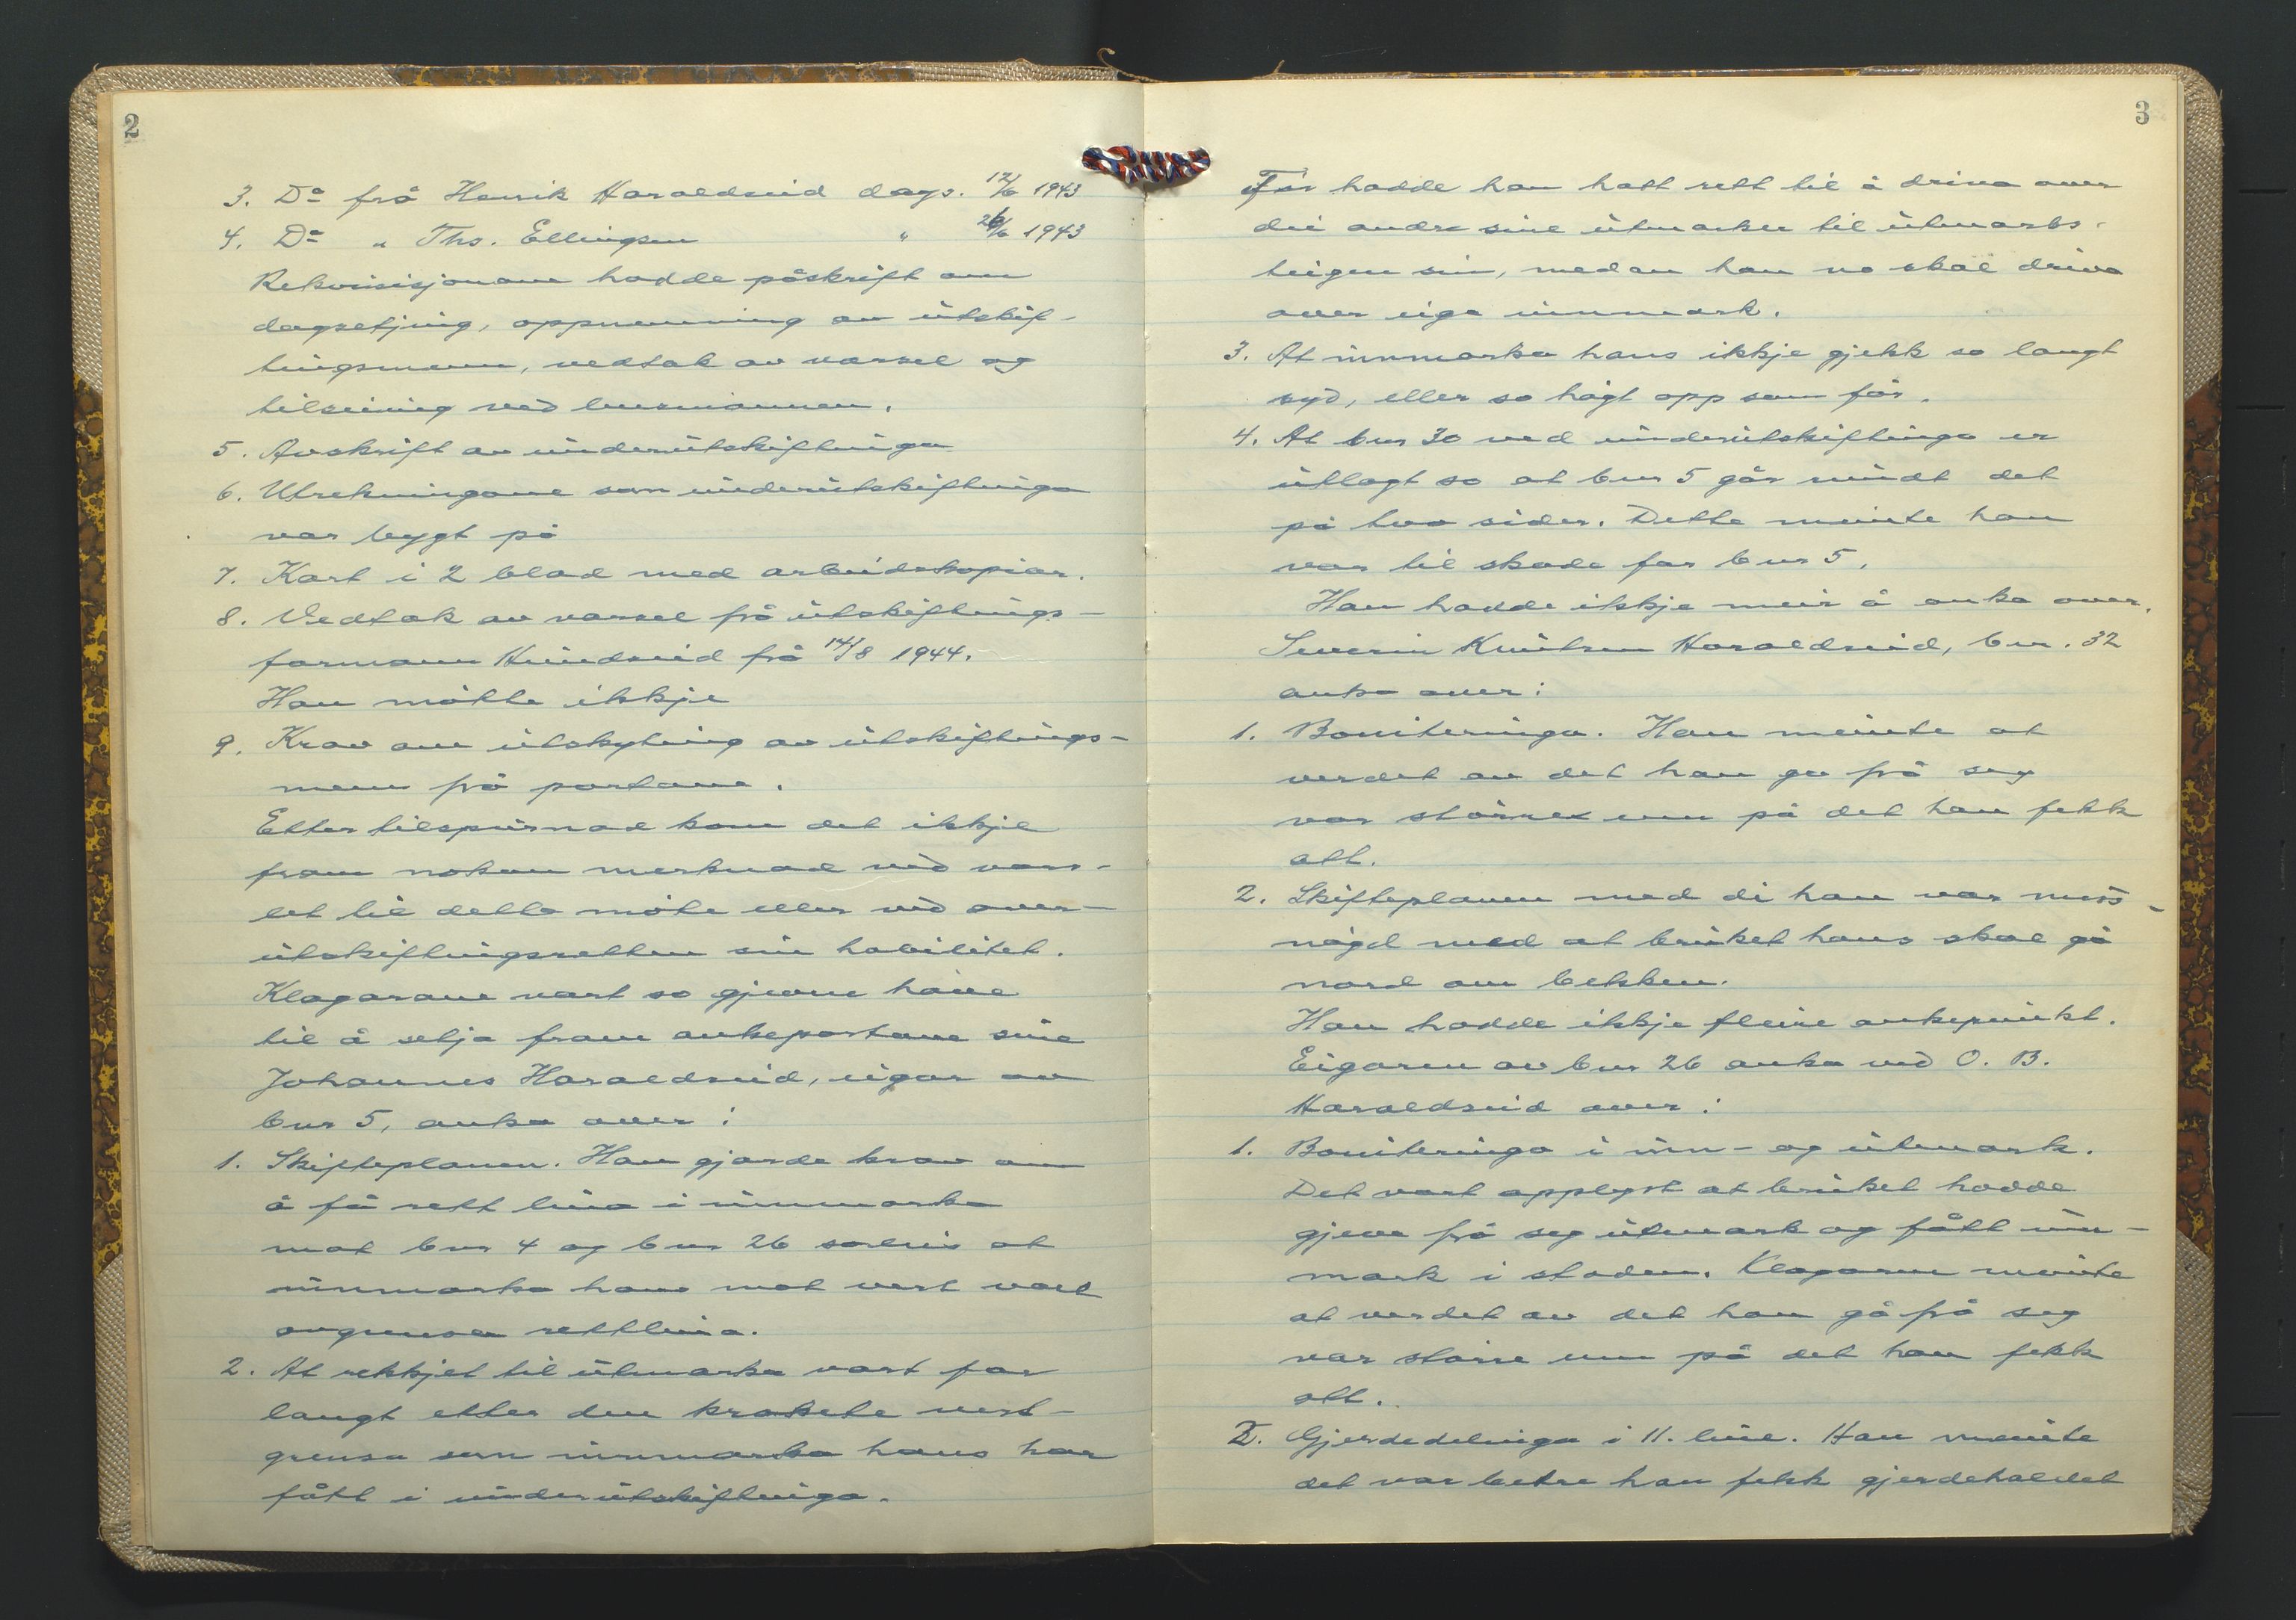 2
3. Do frå Henrik Haraldseid dags. 12/6 1943
4. Do " Ths. Ellingsen " 26/6 1943
Rekvisisjonane hadde påskrift om
dagsetjing, oppnemning av utskif-
tingsmenn, vedtak av varsel og
tilseiing ved lensmannen.
5. Avskrift av underutskiftinga
6. Utrekningane som underutskiftinga
var bygt på
7. Kart i 2 blad med arbeidskopiar.
8. Vedtak av varsel frå utskiftings-
formann Hundseid frå 14/8 1944.
Han møtte ikkje
9. Krav om utskyting av utskiftings-
menn frå partane.
Etter tilspurnad kom det ikkje
fram nokon merknad ved vars-
let til dette møte eller ved over-
utskiftingsretten sin habilitet.
Klagarane vart so gjevne høve
til å setja fram ankepostane sine
Johannes Haraldseid, eigar av
bnr 5, anka over:
1. Skifteplanen. Han gjorde krav om
å få rett lina i innmarka
mot bnr 4 og bnr 26 soleis at
innmarka hans mot vest vart
avgrensa rettlina.
2. At rekkjet til utmarka vart for
langt etter den krokete vest-
grensa som innmarka hans har
fått i underutskiftinga.
3
Før hadde han hatt rett til å driva over
dei andre sine utmarker til utmarks-
teigen sin, medan han no skal driva
over eige innmark.
3. At innmarka hans ikkje gjekk so langt
syd, eller so høgt opp som før.
4. At bnr 30 ved underutskiftinga er
utlagt so at bnr 5 går rundt det
på tvo sider. Dette meinte han
var til skade for bnr 5.
Han hadde ikkje meir å anka over.
Severin Knutsen Haraldseid, bnr. 32
anka over:
1. Boniteringa. Han meinte at
verdet av det han ga frå seg
var større enn på det han fekk
att.
2. Skifteplanen med di han var mis-
nøgd med at bruket hans skal gå
nord om bekken.
Han hadde ikkje fleire ankepunkt.
Eigaren av bnr 26 anka ved O. B.
Haraldseid over:
1. Boniteringa i inn- og utmark.
Det vart opplyst at bruket hadde
gjeve frå seg utmark og fått inn-
mark i staden. Klagaren meinte
at verdet av det han ga frå seg
var større enn på det han fekk
att.
2. Gjerdedelinga i 11. line. Han meinte
det var betre han fekk gjerdehaldet